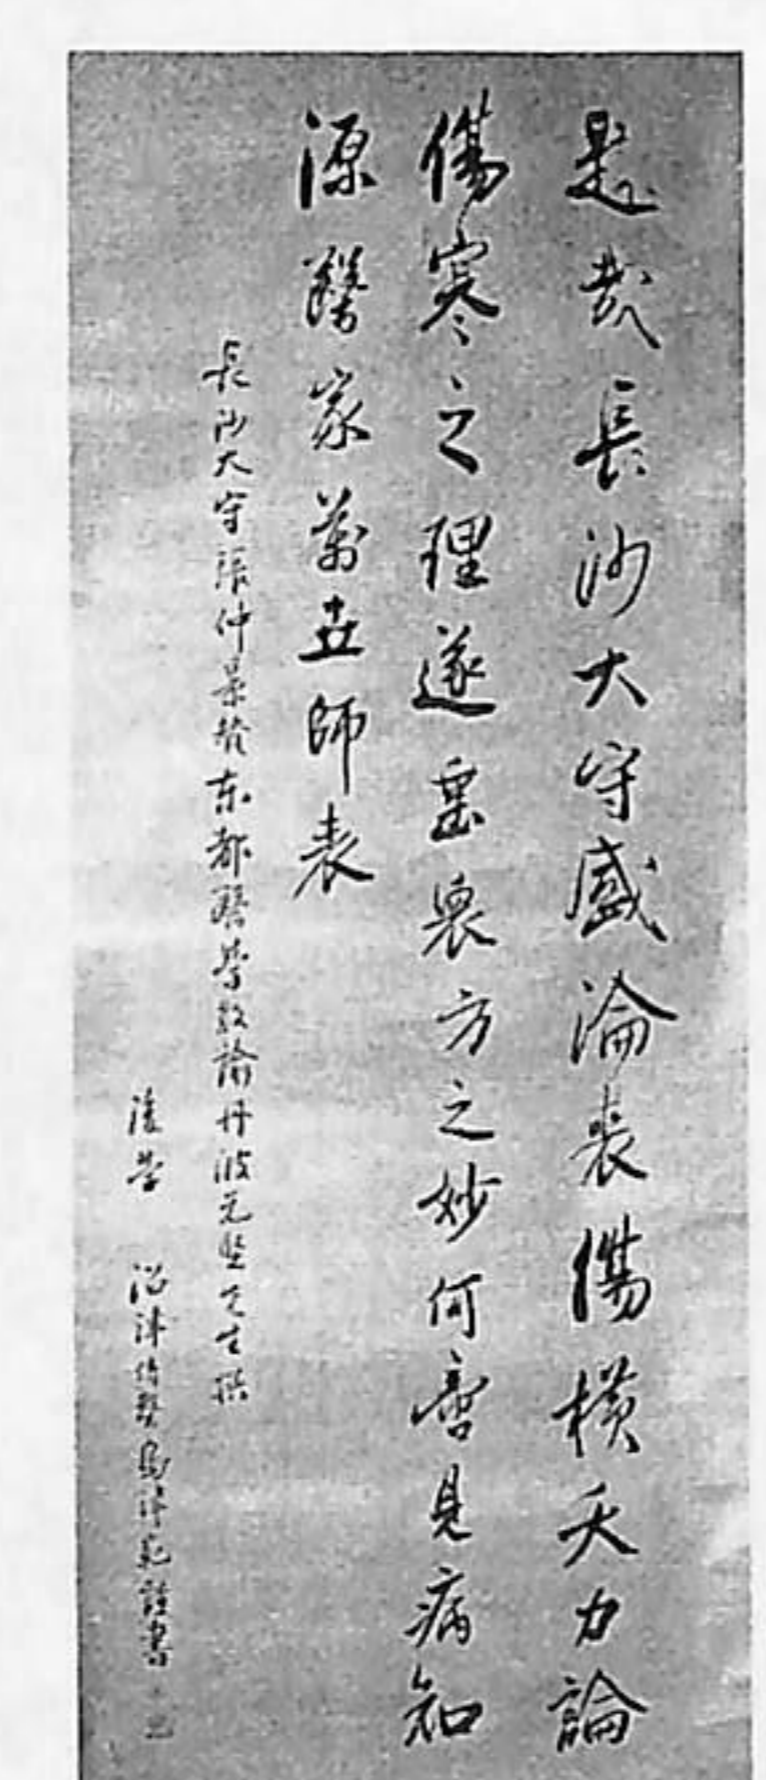 是哉長沙大守感淪喪傷橫夭力論
傷寒之理遂盡裏方之妙何啻見病知
源醫家萬世師表
長沙大守張仲景贊東都醫學教諭丹波元堅先生撰
後學 沼津侍醫 謹書